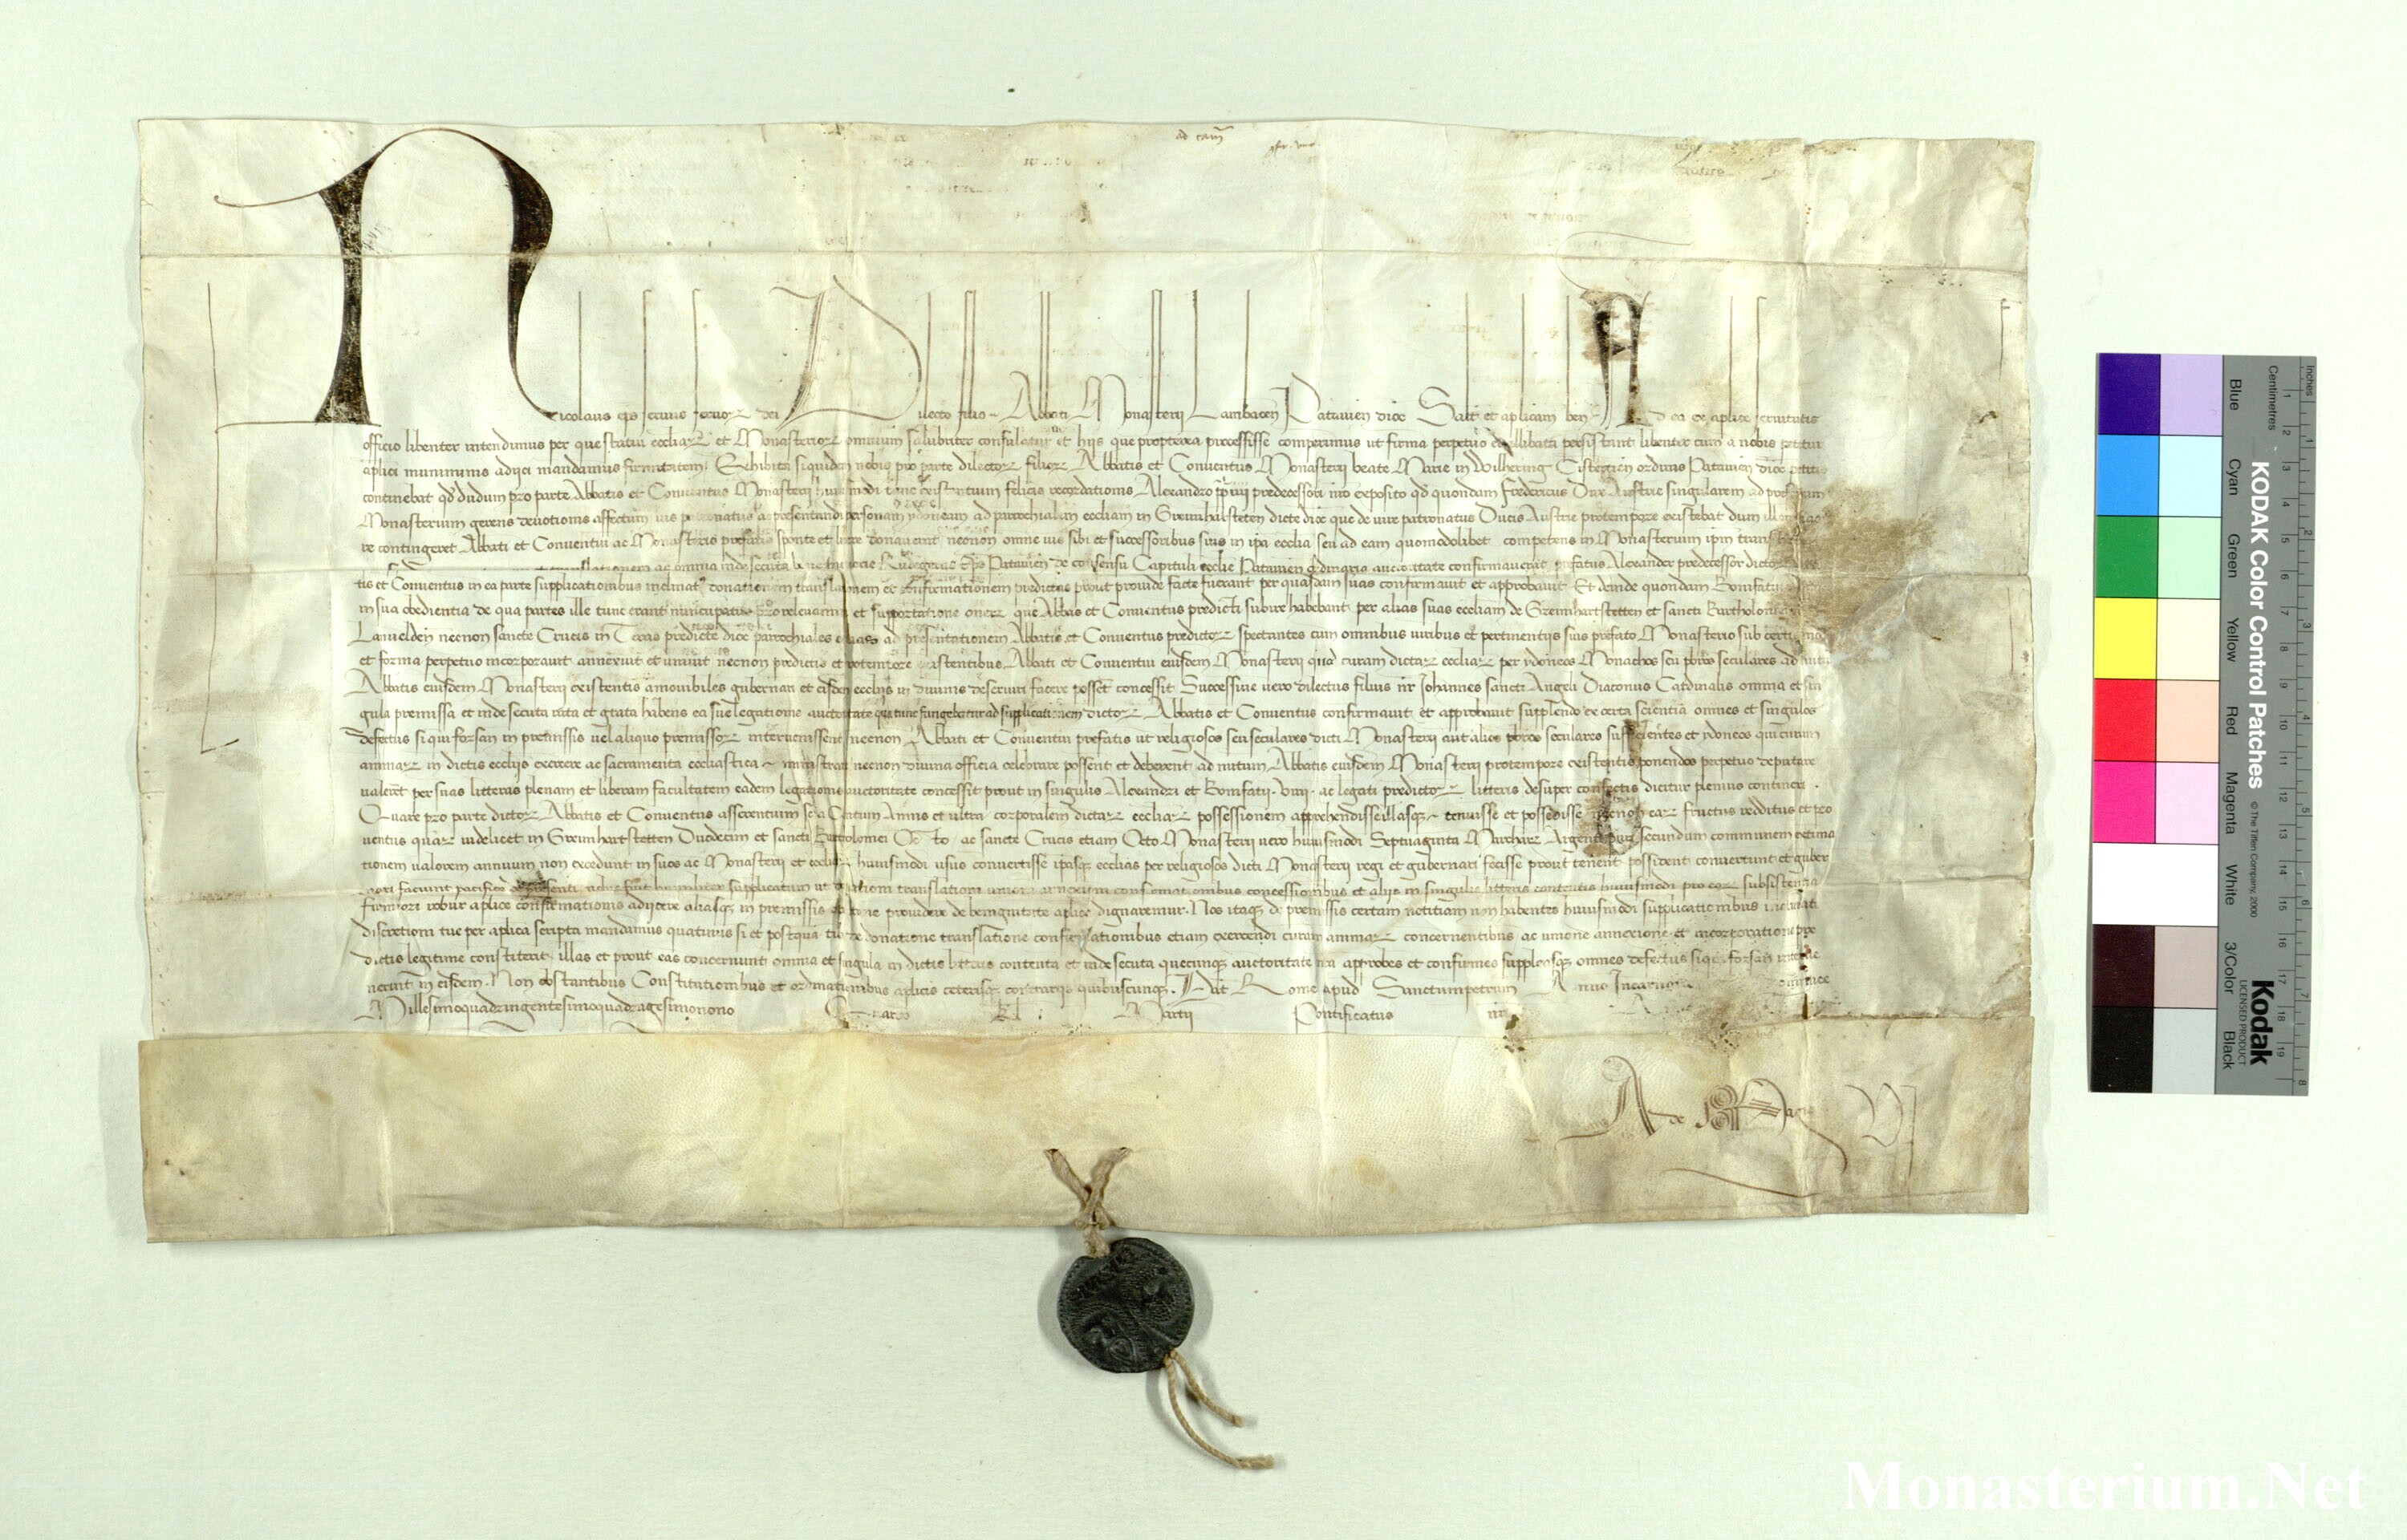 ad cam
Nicolaus eps seruus seruoꝝ dei Dilecto filio Abbati Monasterii Lambacen Patauien dioc Saltm et aplicam ben Ad ea ex aplice seruitutis
officio libenter intendimus per que statui eccliaꝝ et Monasterioꝝ omnium salubriter consulatur et hijs que propterea processisse comperimus ut firma perpetuo et illibata persistant libenter cum a nobis petitur
aplici muniminis adijci mandamus firmitatem. Exhibita siquidem nobis pro parte dilectoꝝ filioꝝ Abbatis et Conuentus Monasterij beate Marie in Wilhering Cistercien ordinis Patauien dioc petitio
continebat qd dudum pro parte Abbatis et Conuentus Monasterij huiusmodi tunc existentium felicis recordationis Alexandro pp iiij predecessori nro exposito qd quondam Fredericus Dux Austrie singularem ad prefatum
Monasterium gerens deuotionis affectum ius patronatus ac presentandi personam ydoneam ad parrochialem eccliam in Gremhartsteten dicte dioc que de iure patronatus Ducis Austrie protempore existebat dum
re contingeret Abbati et Conuentui ac Monasterio prefatis sponte et libere donauerat necnon omne ius sibi et successoribus suis in ipa ecclia seu ad eam quomodolibet competens in Monasterium ipm
translationem ac omnia inde secuta bone memorie Rudigerus Eps Patauien de consensu Capituli ecclie Patauien ordinario auctoritate confirmauerat prefatus Alexander predecessor dictoꝝ
tis et Conuentus in ea parte supplicationibus inclinatus donationem translationem et confirmationem predictas prout prouide facte fuerant per quasdam suas confirmauit et approbauit Et deinde quondam Bonifatius
in sua obedientia de qua partes ille tunc erant nuncupatus pro releuamine et supportatione oneꝝ que Abbas et Conuentus predicti subire habebant per alias suas eccliam de Gremhartstetten et sancti Bartholomei
Lanuelden necnon sancte Crucis in Teras predicte dioc parrochiales ecclias ad presentationem Abbatis et Conuentus predictoꝝ spectantes cum omnibus iuribus et pertinentijs suis prefato Monasterio sub certis
et forma perpetuo incorporauit annexuit et uniuit necnon predictis et protempore existentibus Abbati et Conuentui eiusdem Monasterij quod curam dictaꝝ eccliaꝝ per ydoneos Monachos seu pbros seculares ad
Abbatis eiusdem Monasterij existentis amouibiles gubernari et eisdem ecclijs in diuinis deseruiri facere possent concessit. Successiue uero dilectus filius nr Johannes sancti Angeli Diaconus Cardinalis omnia et sin
gula premissa et inde secuta rata et grata habens ea sue legationis auctoritate qua tunc fungebatur ad supplicationem dictoꝝ Abbatis et Conuentus confirmauit et approbauit supplendo ex certa scientia omnes et singulos
defectus si qui forsan in premissis uel aliquo premissoꝝ interuenissent necnon Abbati et Conuentui prefatis ut religiosos seu seculares dicti Monasterij aut alios pbros seculares sufficientes et ydoneos qui curam
animaꝝ in dictis ecclijs exercere ac sacramenta eccliastica ministrare necnon diuina officia celebrare possent et deberent ad nutum Abbatis eiusdem Monasterij protempore existentis ponendos perpetuo deputare
ualeret per suas litteras plenam et liberam facultatem eadem legationis auctoritate concessit prout in singulis Alexandri et Bonifatij viiij ac legati predictoꝝ litteris desuper confectis dicitur plenius contineri.
Quare pro parte dictoꝝ Abbatis et Conuentus asserentium se a Centum Annis et ultra corporalem dictaꝝ eccliaꝝ possessionem apprehendisse illasqꝫ tenuisse et possedisse necnon eaꝝ fructus redditus et pro
uentus quaꝝ uidelicet in Gremhartstetten Duodecim et sancti Bartholomei Octo ac sancte Crucis etiam Octo Monasterij uero huiusmodi Septuaginta Marchaꝝ Argenti puri secundum communem extima
tionem ualorem annuum non excedunt in suos ac Monasterij et eccliaꝝ huiusmodi usus conuertisse ipasqꝫ ecclias per religiosos dicti Monasterij regi et gubernari fecisse prout tenent possident conuertunt et guber
nari faciunt pacifice et presenti nobis fuit humiliter supplicatum ut donationi translationi unioni annexioni confirmationibus concessionibus et alijs in singulis litteris contentis huiusmodi pro eoꝝ subsistentia
firmiori robur aplice confirmationis adijcere aliasqꝫ in premissis oportune prouidere de benignitate aplica dignaremur. Nos itaqꝫ de premissis certam notitiam non habentes huiusmodi supplicationibus inclinati
discretioni tue per aplica scripta mandamus quatinus si et postquam tibi de donatione translatione confirmationibus etiam exercendi curam animaꝝ concernentibus ac unione annexione et incorporatione pre
dictis legitime constiterit illas et prout eas concernunt omnia et singula in dictis litteris contenta et inde secuta quecunqꝫ auctoritate nra approbes et confirmes suppleasqꝫ omnes defectus si qui forsan interue
nerint in eisdem. Non obstantibus Constitutionibus et ordinationibus aplicis ceterisqꝫ contrarijs quibuscunqꝫ. Dat Rome apud Sanctumpetrum Anno Incarnationis dominice
Millesimoquadringentesimoquadragesimonono Quarto kl Martij Pontificatus nri
A de
KODAK Color Control Patches
© The Tiffen Company, 2000
Kodak
LICENSED PRODUCT
Inches
Centimetres
Blue
Cyan
Green
Yellow
Red
Magenta
White
3/Color
Black
Monasterium.Net